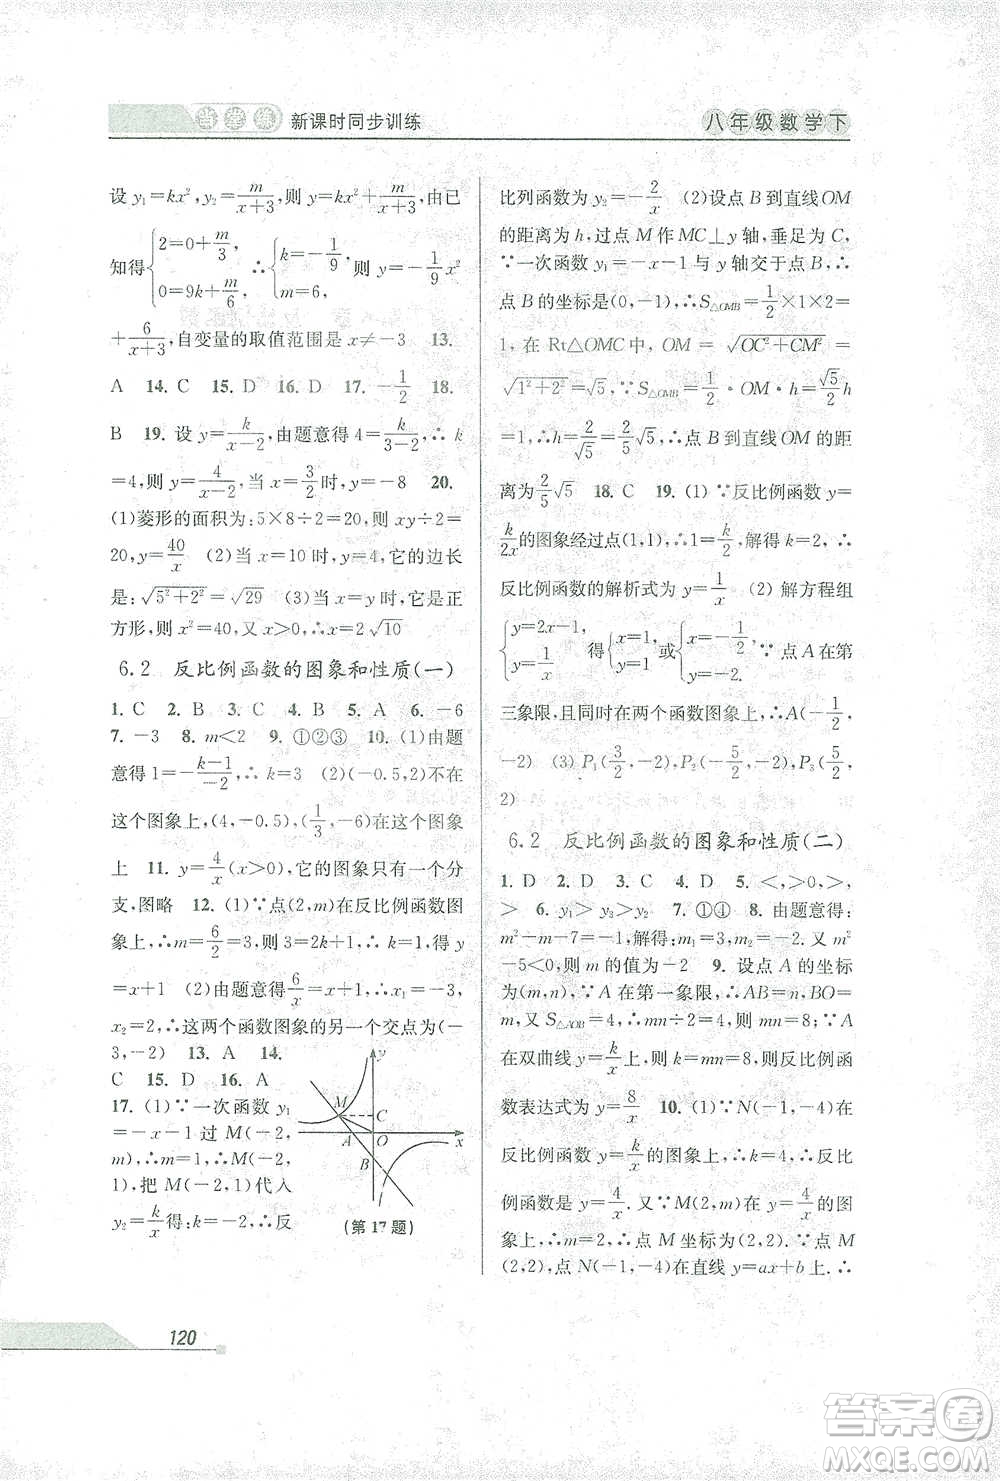 当堂练 新课时同步训练
八年级数学下
设 y₁=kx², y₂=m/(x+3), 则 y=kx²+m/(x+3), 由已
知得{2=0+m/3 0=9k+m/6 ∴{k=-1/9 m=6, 则 y=-1/9x²
+6/(x+3), 自变量的取值范围是 x≠-3 13.
A 14. C 15. D 16. D 17. -1/2 18.
B 19. 设 y=k/(x-2), 由题意得 4=k/(3-2), ∴ k
=4, 则 y=4/(x-2), 当 x=3/2时, y=-8 20.
(1)菱形的面积为: 5×8÷2=20, 则 xy÷2=
20, y=40/x (2)当 x=10 时, y=4, 它的边长
是: √(5²+2²)=√29 (3)当 x=y 时, 它是正
方形, 则 x²=40, 又 x>0, ∴x=2√10
6.2 反比例函数的图象和性质(一)
1. C 2. B 3. C 4. C 5. A 6. -6
7. -3 8. m<2 9. ①②③ 10. (1)由题
意得 1=-(k-1)/(-2), ∴k=3 (2)(-0.5, 4)不在
这个图象上, (4,-0.5), (1/3,-6)在这个图象
上 11. y=4/x(x>0), 它的图象只有一个分
支, 图略 12. (1)∵点(2,m)在反比例函数图
象上, ∴m=6/2=3, ∴3=2k-k+1, 得 y
=x+1 (2)由题意得6/x=x+1, ∴x₁=-3,
x₂=2, ∴这两个函数图象的另一个交点为(-
3,-2) 13. A 14.
C 15. D 16. A
17. (1)∵一次函数 y₁
=-x-1 过 M(-2,
m), ∴m=1, ∴M(-2,
1), 把 M(-2,1)代入
y₂=k/x得: k=-2, ∴反
y
M
C
A
O
x
B
(第 17 题)
比列函数为 y₂=-2/x (2)设点 B 到直线OM
的距离为 h, 过点 M 作 MC⊥y 轴, 垂足为 C,
∵一次函数 y₁=-x-1 与 y 轴交于点 B, ∴
点 B 的坐标是(0,-1), ∴S△OMB=1/2×1×2=
1, 在 Rt△OMC 中, OM=√(OC²+CM²)=
√(1²+2²)=√5, ∵S△OMB=1/2·OM·h=√5/2h
=1, ∴h=2/√5=2/5√5, ∴点 B 到直线 OM 的距
离为2/5√5 18. C 19. (1) ∵反比例函数 y=
k/2x的图象经过点(1,1), ∴1=k/2, 解得 k=2, ∴
反比例函数的解析式为 y=1/x (2) 解方程组
{y=2x-1, y=1/x 得{x=1, y=1;或{x=-1/2, y=-2. ∵点 A 在第
三象限, 且同时在两个函数图象上, ∴A(-1/2,
-2) (3) P₁(3/2,-2), P₂(-5/2,-2), P₃(5/2,
2)
6.2 反比例函数的图象和性质(二)
1. D 2. D 3. C 4. D 5. <, >0, >,
> 6. y₁>y₃>y₂ 7. ①④ 8. 由题意得:
m²-m-7=-1, 解得: m₁=3, m₂=-2. 又 m²
-5<0, 则 m 的值为-2 9. 设点 A 的坐标
为(m,n), ∵A 在第一象限, ∴AB=n, BO=
m, 又 S△AOB=4, ∴mn÷2=4, mn=8; ∵A
在双曲线 y=k/x上, ∴k=mn=8, 则反比例函
数表达式为 y=8/x 10. (1)∵N(-1,-4)在
反比例函数 y=k/x的图象上, ∴k=4, ∴反比
例函数是 y=4/x. 又∵M(2,m)在 y=4/x的图
象上, ∴m=2, ∴点 M 坐标为(2,2). ∵点 M
(2,2), 点 N(-1,-4)在直线 y=ax+b 上. ∴
120
答案圈
MXQE.COM